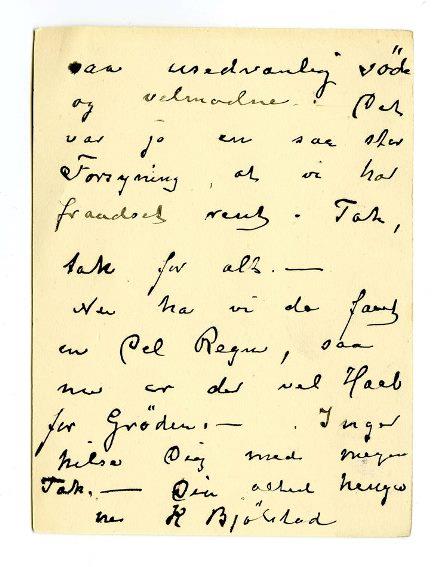 saa usedvanlig söde
og velmodne. Det
var jo en saa stor
Forsyning, at vi har
fraadset rent. Tak,
tak for alt. —
Nu ha vi da faaet
en Del Regn, saa
nu er der vel Haab
for Gröden. — Inger
hilse Dig med megen
Tak. — Din altid hengiv
ne K Bjölstad